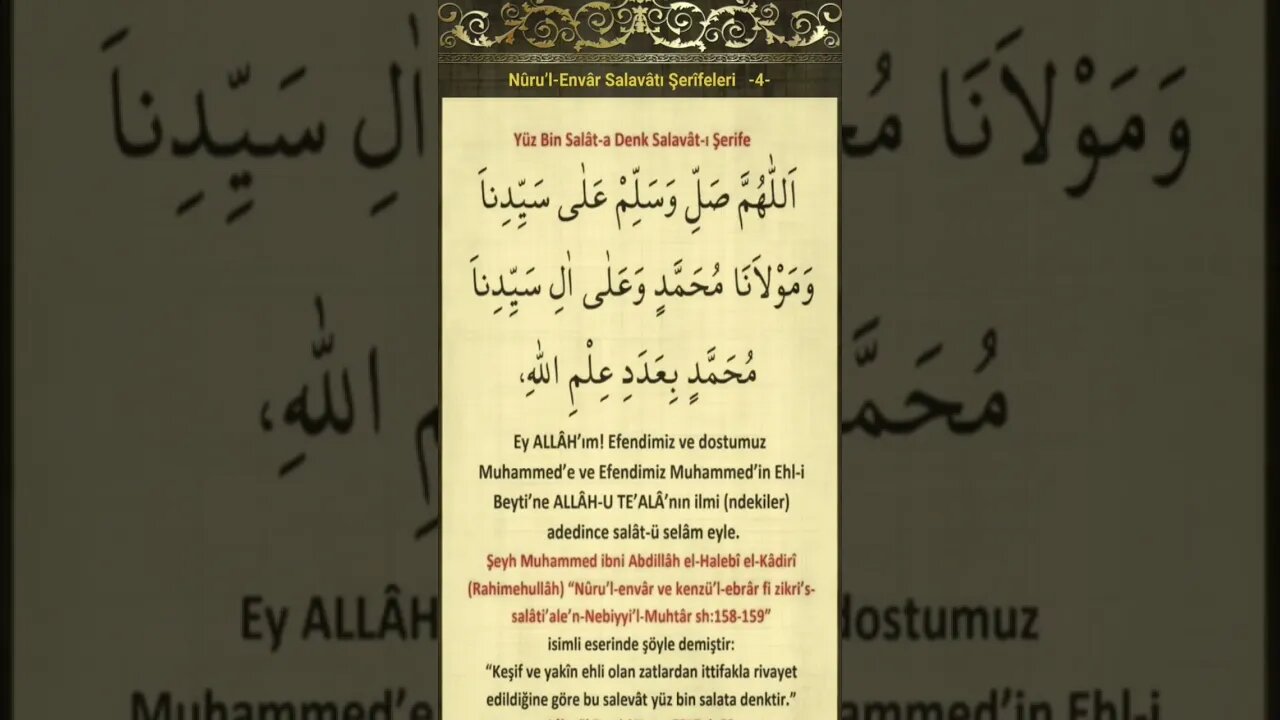 Nûru’l-Envâr Salavâtı Şerîfeleri -4-
Yüz Bin Salât-a Denk Salavât-ı Şerife
اَللّٰهُمَّ صَلِّ وَسَلِّمْ عَلٰى سَيِّدِناَ
وَمَوْلاَنَا مُحَمَّدٍ وَعَلٰى اٰلِ سَيِّدِناَ
مُحَمَّدٍ بِعَدَدِ عِلْمِ اللّٰهِ،
Ey ALLÂH’ım! Efendimiz ve dostumuz
Muhammed’e ve Efendimiz Muhammed’in Ehl-i
Beyti’ne ALLÂH-U TE’ALÂ’nın ilmi (ndekiler)
adedince salât-ü selâm eyle.
Şeyh Muhammed ibni Abdillâh el-Halebî el-Kâdirî
(Rahimehullâh) “Nûru’l-envâr ve kenzü’l-ebrâr fi zikri’s-
salâti’ale’n-Nebiyyi’l-Muhtâr sh:158-159”
isimli eserinde şöyle demiştir:
“Keşif ve yakîn ehli olan zatlardan ittifakla rivayet
edildiğine göre bu salevât yüz bin salata denktir.”